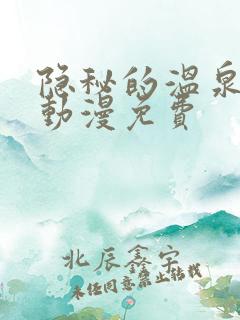 隐秘的温泉
動漫免費
北辰鑫宇
未经同意禁止转载